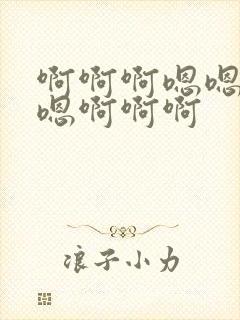 啊啊啊嗯嗯
嗯啊啊啊
浪子小力